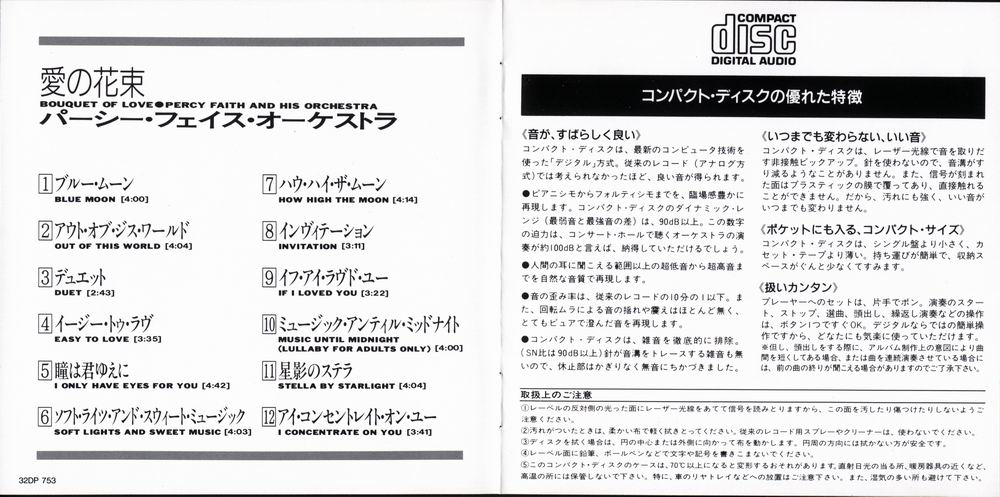 愛の花束
BOUQUET OF LOVE●PERCY FAITH AND HIS ORCHESTRA
パーシー・フェイス・オーケストラ
1 ブルー・ムーン
BLUE MOON [4:00]
2 アウト・オブ・ジス・ワールド
OUT OF THIS WORLD [4:04]
3 デュエット
DUET [2:43]
4 イージー・トゥ・ラヴ
EASY TO LOVE [3:35]
5 瞳は君ゆえに
I ONLY HAVE EYES FOR YOU [4:42]
6 ソフト・ライツ・アンド・スウィート・ミュージック
SOFT LIGHTS AND SWEET MUSIC [4:03]
7 ハウ・ハイ・ザ・ムーン
HOW HIGH THE MOON [4:14]
8 インヴィテーション
INVITATION [3:11]
9 イフ・アイ・ラヴド・ユー
IF I LOVED YOU [3:22]
10 ミュージック・アンティル・ミッドナイト
MUSIC UNTIL MIDNIGHT
(LULLABY FOR ADULTS ONLY) [4:00]
11 星影のステラ
STELLA BY STARLIGHT [4:04]
12 アイ・コンセントレイト・オン・ユー
I CONCENTRATE ON YOU [3:41]
32DP 753
COMPACT
disc
DIGITAL AUDIO
コンパクト・ディスクの優れた特徴
《音が、すばらしく良い》
コンパクト・ディスクは、最新のコンピュータ技術を
使った「デジタル」方式。従来のレコード(アナログ方
式)では考えられなかったほど、良い音が得られます。
●ピアニシモからフォルティシモまでを、臨場感豊かに
再現します。コンパクト・ディスクのダイナミック・レ
ンジ(最弱音と最強音の差)は、90dB以上。この数字
の迫力は、コンサート・ホールで聴くオーケストラの演
奏が約100dBと言えば、納得していただけるでしょう。
●人間の耳に聞こえる範囲以上の超低音から超高音ま
でを自然な音質で再現します。
●音の歪み率は、従来のレコードの10分の1以下。ま
た、回転ムラによる音の揺れや震えはほとんど無く、
とてもピュアで澄んだ音を再現します。
●コンパクト・ディスクは、雑音を徹底的に排除。
(SN比は90dB以上)針が音溝をトレースする雑音も無
いので、休止部はかぎりなく無音にちかづきました。
《いつまでも変わらない、いい音》
コンパクト・ディスクは、レーザー光線で音を取りだ
す非接触ピックアップ。針を使わないので、音溝がす
り減るようなことがありません。また、信号が刻まれ
た面はプラスティックの膜で覆ってあり、直接触れる
ことができません。だから、汚れにも強く、いい音が
いつまでも変わりません。
《ポケットにも入る、コンパクト・サイズ》
コンパクト・ディスクは、シングル盤より小さく、カ
セット・テープより薄い。持ち運びが簡単で、収納ス
ペースがぐんと少なくてすみます。
《扱いカンタン》
プレーヤーへのセットは、片手でポン。演奏のスター
ト、ストップ、選曲、頭出し、繰返し演奏などの操作
は、ボタン1つですぐOK。デジタルならではの簡単操
作ですから、どなたにも気楽に使っていただけます。
※但し、頭出しをする際に、アルバム制作上の意図により曲
間を短くしてある場合、または曲を連続演奏させている場合に
は、前の曲の終りが聞こえる場合がありますのでご了承下さい。
取扱上のご注意
①レーベルの反対側の光った面にレーザー光線をあてて信号を読みとりますから、この面を汚したり傷つけたりしないようご
注意ください。
②汚れがついたときは、柔かい布で軽く拭きとってください。従来のレコード用スプレーやクリーナーは、使わないでください。
③ディスクを拭く場合は、円の中心または外側に向かって布を動かします。円周の方向には拭かない方が安全です。
④レーベル面に鉛筆、ボールペンなどで文字や記号を書きこまないでください。
⑤このコンパクト・ディスクのケースは、70℃以上になると変形するおそれがあります。直射日光の当る所、暖房器具の近くなど、
高温の所には保管しないで下さい。特に、車のリヤトレイなどへの放置はご注意下さい。また、湿気の多い所も避けて下さい。